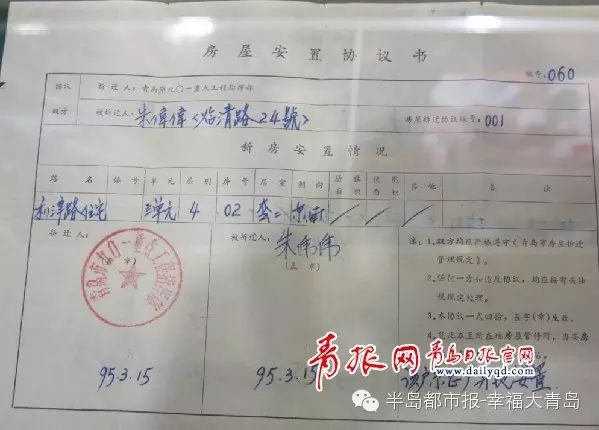 房屋安置协议书
编号：060
协议双方
拆迁人：青岛市九〇一重点工程指挥部
被拆迁人：朱伟伟《临清路24號》
房屋拆迁协议编号：001
新房安置情况
路名 楼号 单元 层别 房号 居室 朝向 建筑面积 使用面积 其他 备注
利津路住宅 三单元 4 02 套二 东南
拆迁人：
（盖章）
青岛市九〇一重点工程指挥部
95.3.15
被拆迁人：
朱伟伟
（盖章）
95.3.15
注：1.双方均应严格遵守《青岛市房屋拆迁管理规定》。
2.任何一方如违反协议，均应按有关法规规定处理。
3.本协议一式四份，签字（章）生效。
青报网
青岛日报官网
www.dailyqd.com
半岛都市报-幸福大青岛